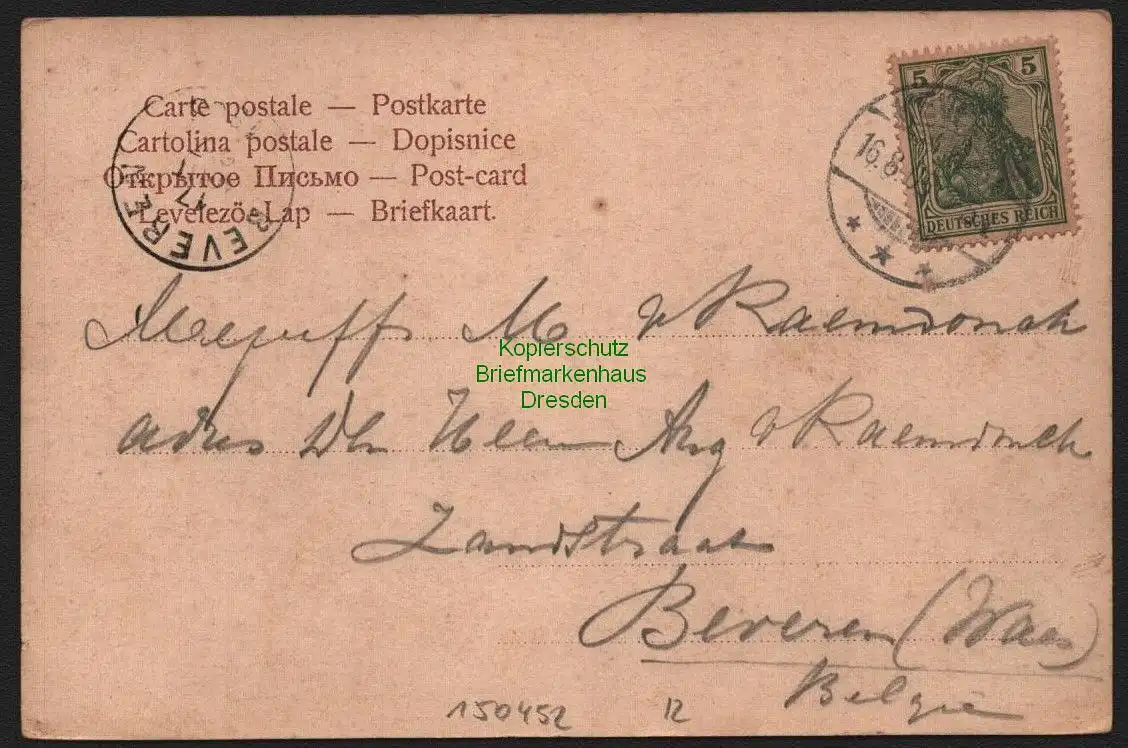 Carte postale — Postkarte
Cartolina postale — Dopisnice
Открытое Письмо — Post-card
Levelezö-Lap — Briefkaart.
BEVEREN
17
5 5
DEUTSCHES REICH
16.8.
Mejuffr M v Raemdonck
adres Den Heer Aug v Raemdonck
Zandstraat
Beveren (Waes)
Belgie
Kopierschutz
Briefmarkenhaus
Dresden
150452 12